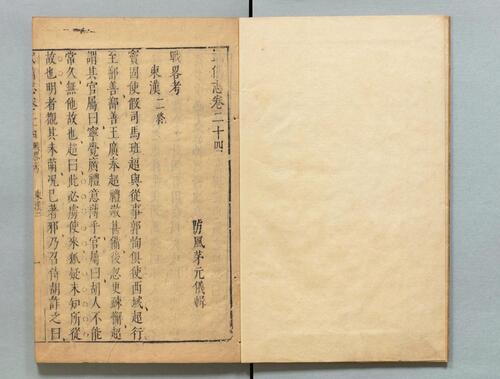 武備志卷二十四
防風茅元儀輯
戰畧考
東漢二
竇固使假司馬班超與從事郭恂俱使西域超行
至鄯善鄯善王廣奉超禮敬甚備後忽更疎懈超
謂其官屬曰寧覺廣禮意薄乎官屬曰胡人不能
常久無他故也超曰此必虜使來狐疑未知所從
故也明者觀其未萌况已著邪乃召侍胡詐之曰